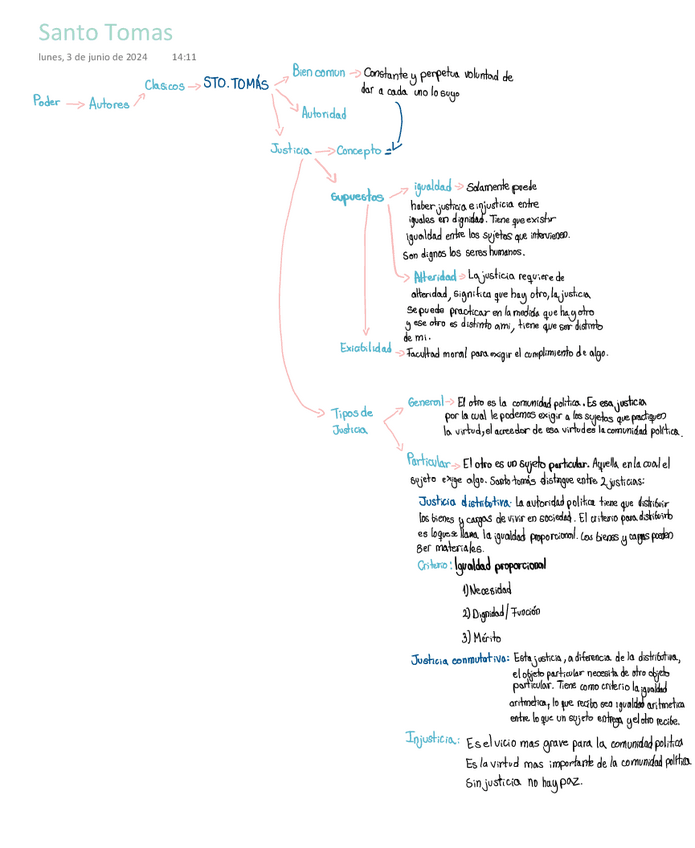 Santo Tomas
lunes, 3 de junio de 2024 14:11
Poder → Autores → Clasicos → STO. TOMÁS
Bien comun → Constante y perpetua voluntad de
dar a cada uno lo suyo
Autoridad
Justicia → Concepto =
Supuestos
igualdad → Solamente puede
haber justicia e injusticia entre
iguales en dignidad. Tiene que existir
igualdad entre los sujetos que intervienen.
Son dignos los seres humanos.
Alteridad → La justicia requiere de
alteridad, significa que hay otro, la justicia
se puede practicar en la medida que hay otro
y ese otro es distinto a mi, tiene que ser distinto
de mi.
Exiabilidad → Facultad moral para exigir el cumplimiento de algo.
Tipos de
Justicia
General → El otro es la comunidad politica. Es esa justicia
por la cual le podemos exigir a los sujetos que practiquen
la virtud, el acreedor de esa virtud es la comunidad política.
Particular → El otro es un sujeto particular. Aquella en la cual el
sujeto exige algo. Santo tomás distingue entre 2 justicias:
Justicia distributiva: La autoridad politica tiene que distribuir
los bienes y cargas de vivir en sociedad. El criterio para distribuirlo
es lo que se llama la igualdad proporcional. Los bienes y cargas pueden
ser materiales.
Criterio: Igualdad proporcional
1) Necesidad
2) Dignidad / Función
3) Mérito
Justicia conmutativa: Esta justicia, a diferencia de la distributiva,
el objeto particular necesita de otro objeto
particular. Tiene como criterio la igualdad
aritmetica, lo que recibo sea igualdad aritmetica
entre lo que un sujeto entrega y el otro recibe.
Injusticia: Es el vicio mas grave para la comunidad politica
Es la virtud mas importante de la comunidad política
Sin justicia no hay paz.